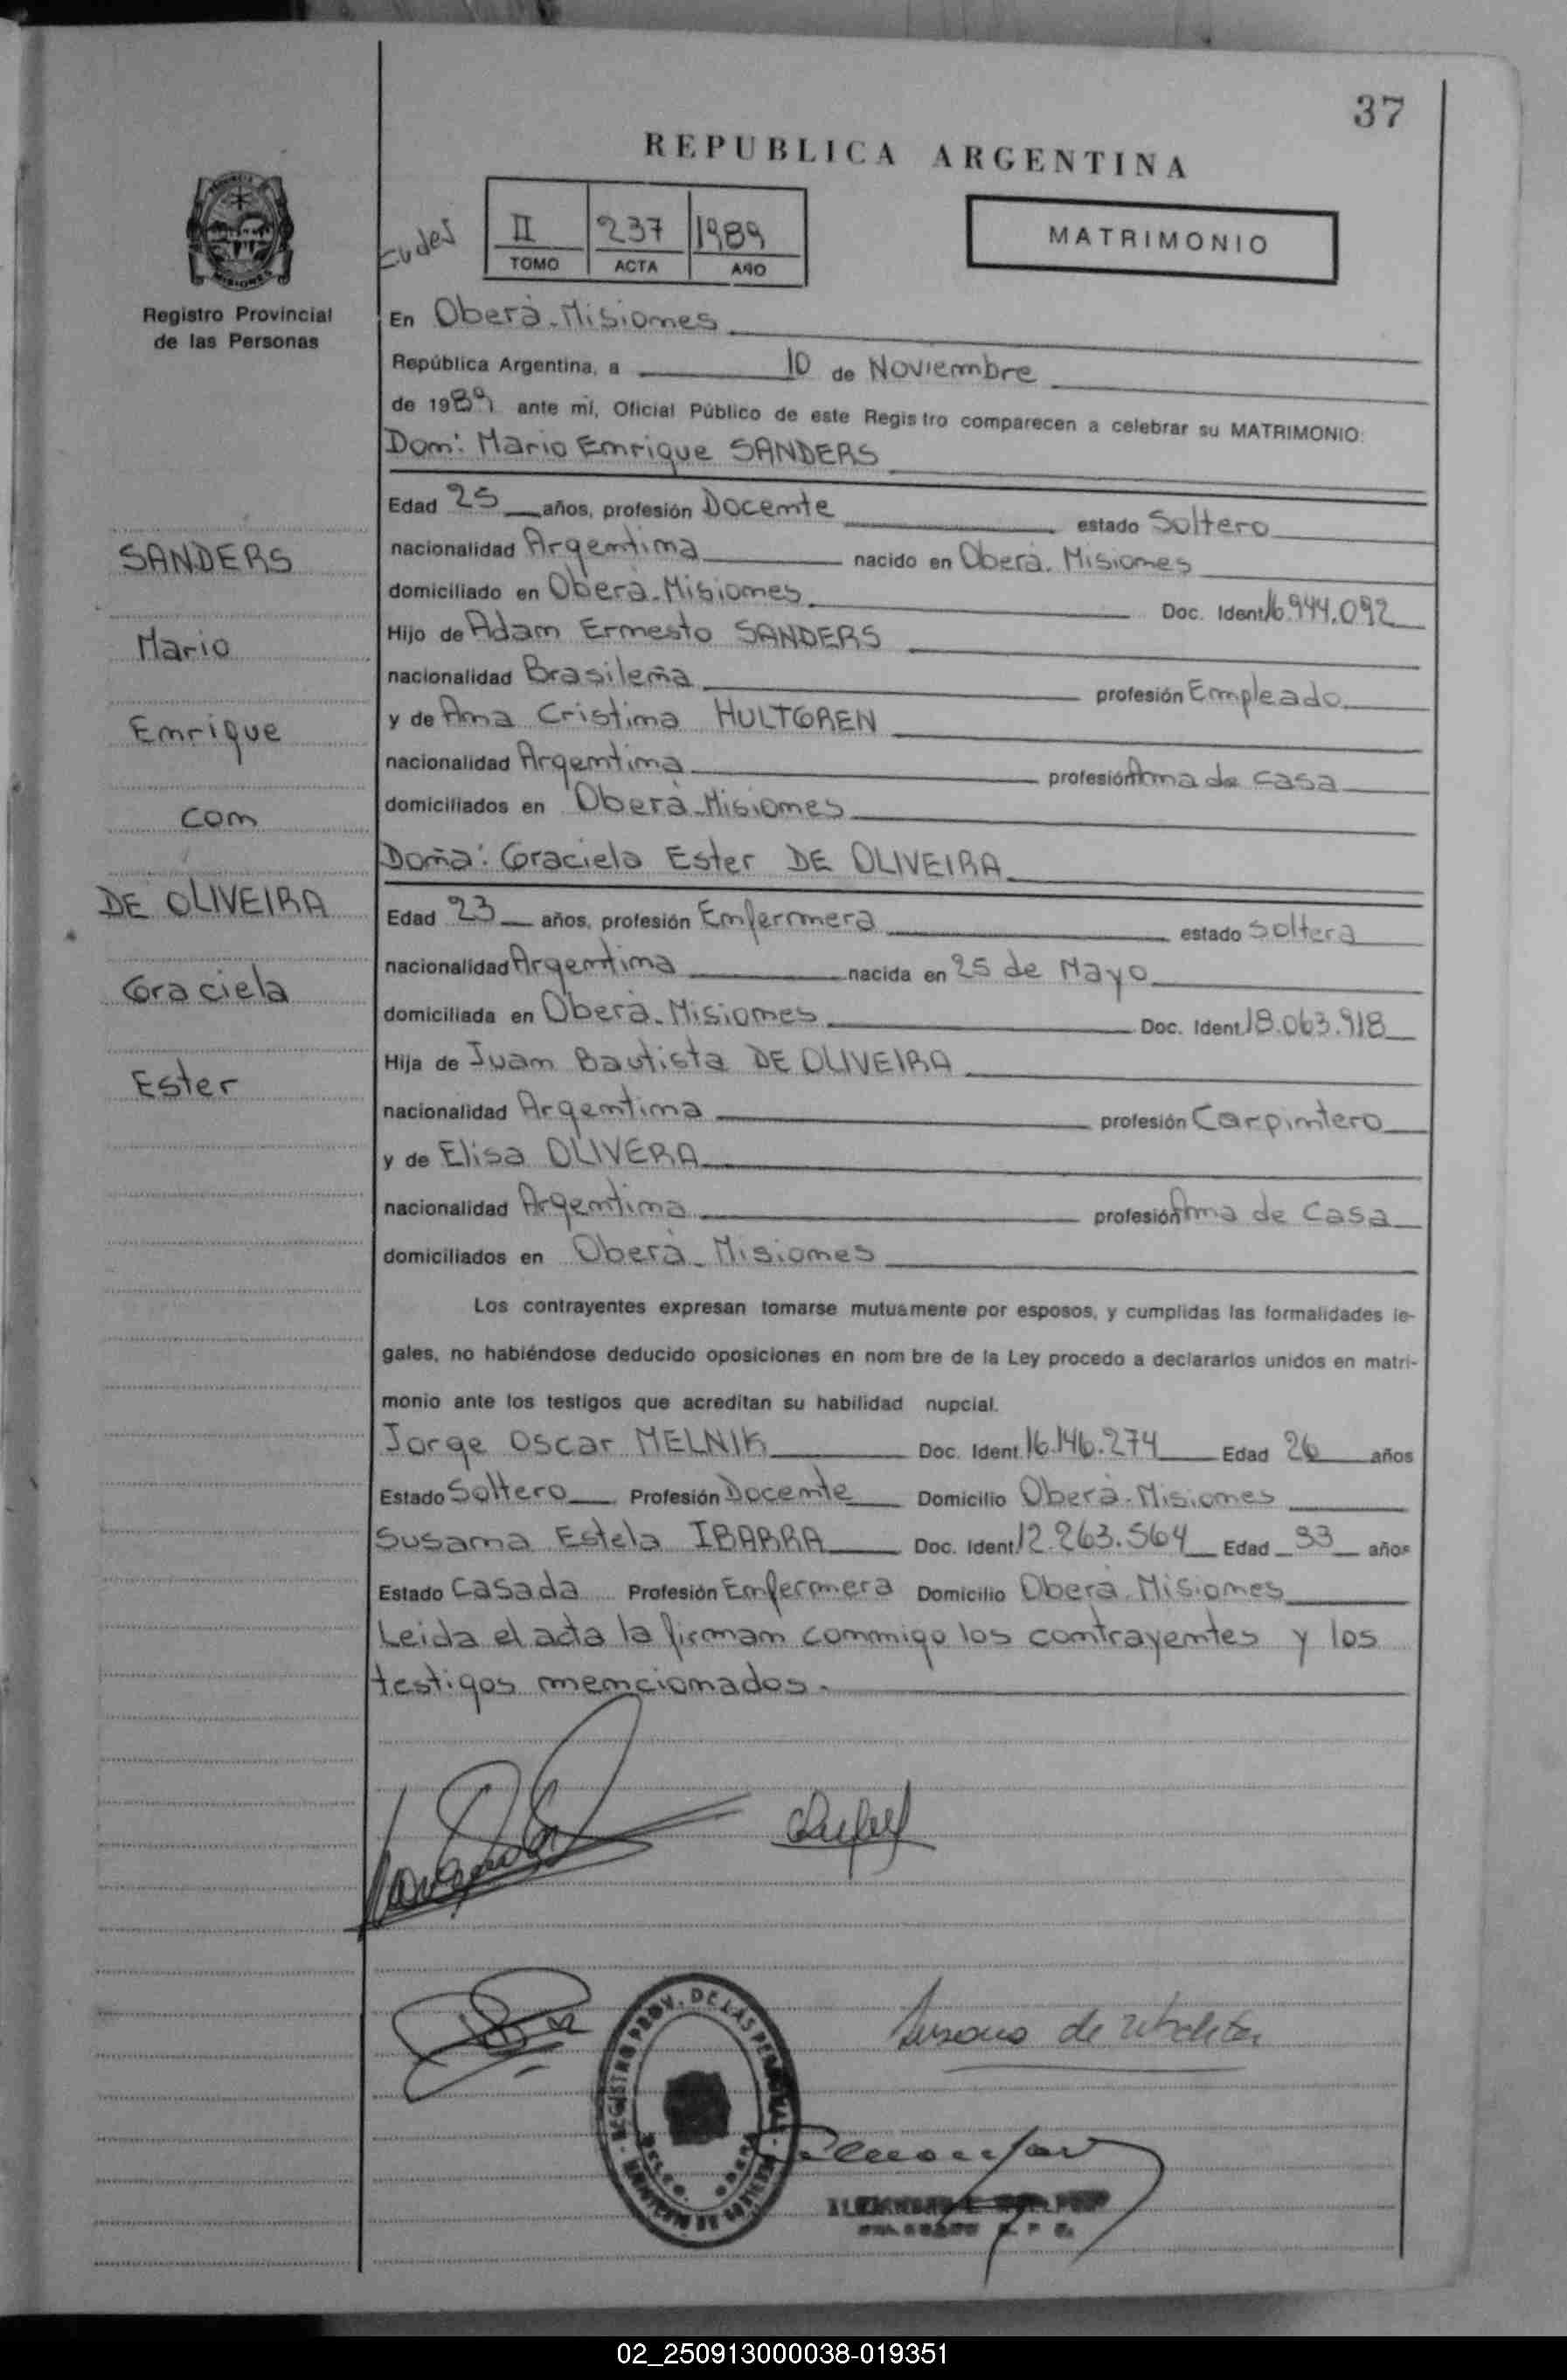 37
REPUBLICA ARGENTINA
II 237 1989
TOMO ACTA AÑO
MATRIMONIO
Registro Provincial
de las Personas
En Oberá-Misiones
República Argentina, a 10 de Noviembre
de 1989 ante mí, Oficial Público de este Registro comparecen a celebrar su MATRIMONIO:
Don: Mario Enrique SANDERS
Edad 25 años, profesión Docente estado Soltero
nacionalidad Argentina nacido en Oberá. Misiones
domiciliado en Oberá-Misiones Doc. Ident. 16.944.092
Hijo de Adam Ernesto SANDERS
nacionalidad Brasileña profesión Empleado
y de Ana Cristina HULTGREN
nacionalidad Argentina profesión Ama de casa
domiciliados en Oberá-Misiones
Doña: Graciela Ester DE OLIVEIRA
Edad 23 años, profesión Enfermera estado soltera
nacionalidad Argentina nacida en 25 de Mayo
domiciliada en Oberá-Misiones Doc. Ident. 18.063.918
Hija de Juan Bautista DE OLIVEIRA
nacionalidad Argentina profesión Carpintero
y de Elisa OLIVERA
nacionalidad Argentina profesión Ama de Casa
domiciliados en Oberá-Misiones
SANDERS
Mario
Enrique
con
DE OLIVEIRA
Graciela
Ester
Los contrayentes expresan tomarse mutuamente por esposos, y cumplidas las formalidades le-
gales, no habiéndose deducido oposiciones en nom bre de la Ley procedo a declararlos unidos en matri-
monio ante los testigos que acreditan su habilidad nupcial.
Jorge Oscar MELNIK Doc. Ident. 16.146.274 Edad 26 años
Estado Soltero Profesión Docente Domicilio Oberá-Misiones
Susana Estela IBARRA Doc. Ident. 12.263.564 Edad 33 años
Estado Casada Profesión Enfermera Domicilio Oberá-Misiones
Leida el acta la firman conmigo los contrayentes y los
testigos mencionados.
REGISTRO PROV. DE LAS PERSONAS
Susana de
02_250913000038-019351